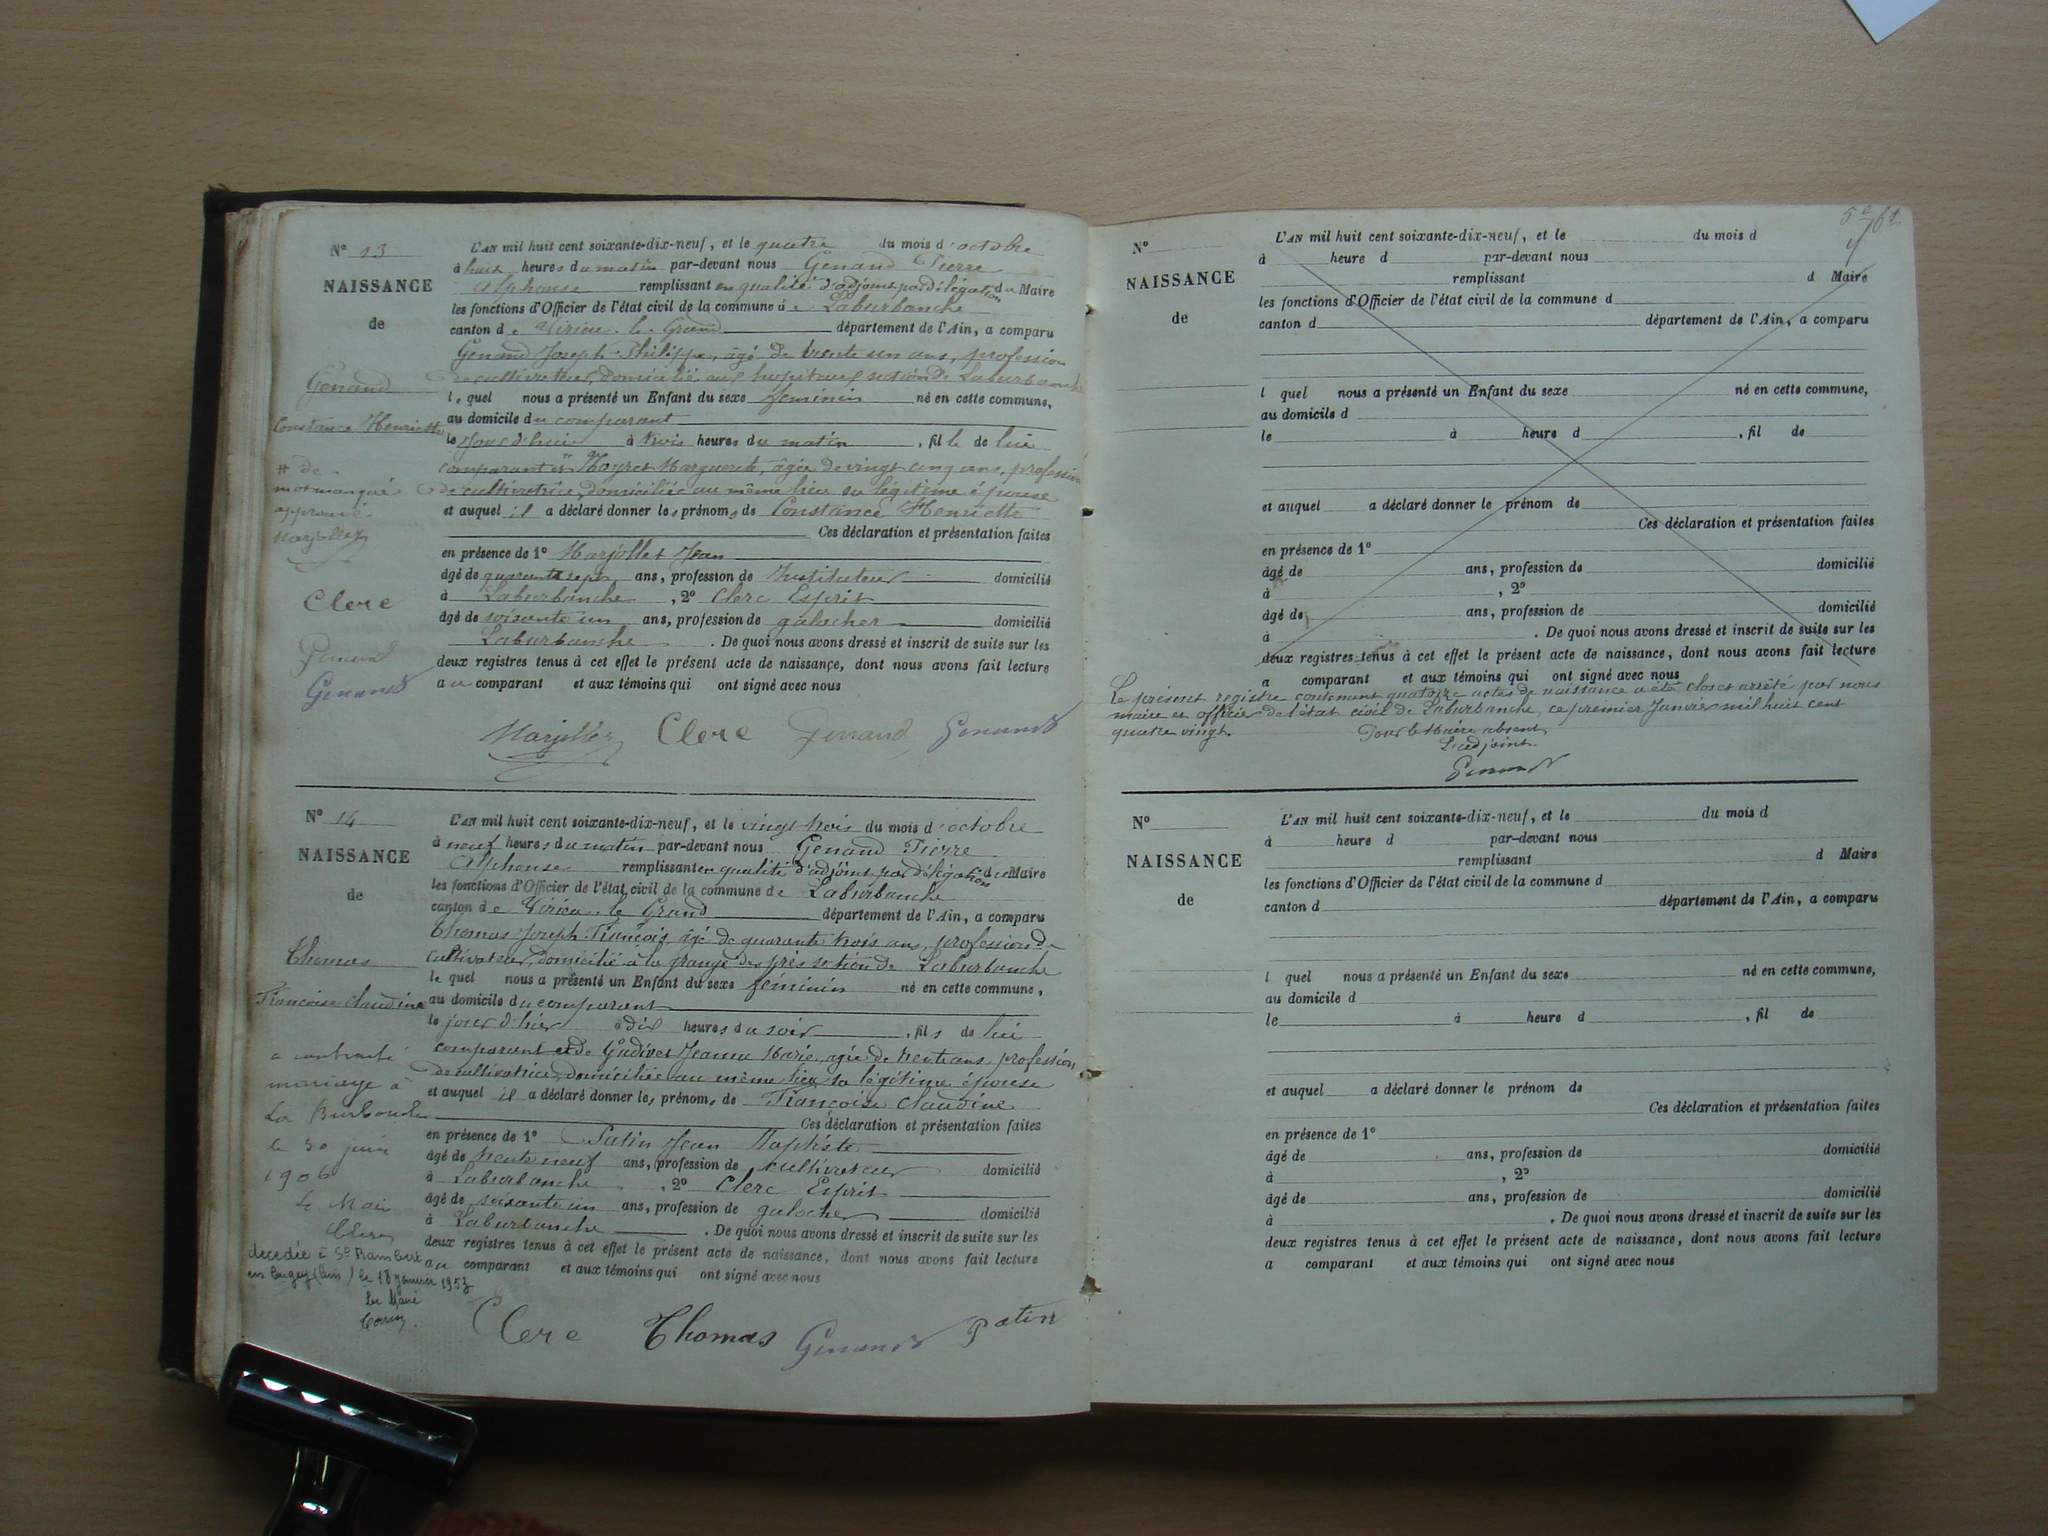 N° 13
NAISSANCE
de
Genand
Constance Henriette
# de
mot manqué
approuvé
Marjollet
Clerc
Genand
Genand
L'AN mil huit cent soixante-dix-neuf, et le quatre du mois d'octobre
à huit heures du matin par-devant nous Genand Pierre
Alphonse remplissant en qualité d'adjoint par délégation du Maire
les fonctions d'Officier de l'état civil de la commune de Laburbanche
canton de Virieu-le-Grand département de l'Ain, a comparu
Genand Joseph Philippe, âgé de trente un ans, profession
de cultivateur, domicilié aux hopitaux section de Laburbanche
lequel nous a présenté un Enfant du sexe féminin né en cette commune,
au domicile du comparant
le jour d'hui à trois heures du matin, fille de lui
comparant et # Marguerite, âgée de vingt cinq ans, profession
de cultivatrice, domiciliée au même lieu sa légitime épouse
et auquel il a déclaré donner les prénoms de Constance Henriette
Ces déclaration et présentation faites
en présence de 1° Marjollet Jean
âgé de quarante sept ans, profession de Instituteur domicilié
à Laburbanche, 2° Clerc Esprit
âgé de soixante un ans, profession de galocher domicilié
Laburbanche. De quoi nous avons dressé et inscrit de suite sur les
deux registres tenus à cet effet le présent acte de naissance, dont nous avons fait lecture
au comparant et aux témoins qui ont signé avec nous
Marjollet Clerc Genand Genand
N° 14
NAISSANCE
de
Thomas
Françoise Claudine
a contracté
mariage à
La Burbanche
le 30 juin
1906
Le Maire
Clerc
décédée à St Rambert
en Bugey (Ain) le 18 janvier 1953
Le Maire
L'AN mil huit cent soixante-dix-neuf, et le vingt trois du mois d'octobre
à neuf heures du matin par-devant nous Genand Pierre
Alphonse remplissant en qualité d'adjoint par délégation du Maire
les fonctions d'Officier de l'état civil de la commune de Laburbanche
canton de Virieu-le-Grand département de l'Ain, a comparu
Thomas Joseph François âgé de quarante trois ans, profession de
cultivateur, domicilié à la grange des prés section de Laburbanche
lequel nous a présenté un Enfant du sexe féminin né en cette commune,
au domicile du comparant
le jour d'hier à dix heures du soir, fils de lui
comparant et de Gudivet Jeanne Marie, agée de trente ans, profession
de cultivatrice, domiciliée au même lieu sa légitime épouse
et auquel il a déclaré donner les prénoms de Françoise Claudine
Ces déclaration et présentation faites
en présence de 1° Patin Jean Baptiste
âgé de trente neuf ans, profession de cultivateur domicilié
à Laburbanche, 2° Clerc Esprit
âgé de soixante un ans, profession de galocher domicilié
à Laburbanche. De quoi nous avons dressé et inscrit de suite sur les
deux registres tenus à cet effet le présent acte de naissance, dont nous avons fait lecture
au comparant et aux témoins qui ont signé avec nous
Clerc Thomas Genand Patin
5e 61
N°
NAISSANCE
de
L'AN mil huit cent soixante-dix-neuf, et le du mois d
à heure d par-devant nous
remplissant d Maire
les fonctions d'Officier de l'état civil de la commune d
canton d département de l'Ain, a comparu
l quel nous a présenté un Enfant du sexe né en cette commune,
au domicile d
le à heure d, fil de
et auquel a déclaré donner le prénom de
Ces déclaration et présentation faites
en présence de 1°
âgé de ans, profession de domicilié
à, 2°
âgé de ans, profession de domicilié
à. De quoi nous avons dressé et inscrit de suite sur les
deux registres tenus à cet effet le présent acte de naissance, dont nous avons fait lecture
a comparant et aux témoins qui ont signé avec nous
Le présent registre contenant quatorze actes de naissance a été clos et arrêté par nous
maire et officier de l'état civil de Laburbanche, ce premier Janvier mil huit cent
quatre vingt.
Pour le Maire absent
L'adjoint
Genand
N°
NAISSANCE
de
L'AN mil huit cent soixante-dix-neuf, et le du mois d
à heure d par-devant nous
remplissant d Maire
les fonctions d'Officier de l'état civil de la commune d
canton d département de l'Ain, a comparu
l quel nous a présenté un Enfant du sexe né en cette commune,
au domicile d
le à heure d, fil de
et auquel a déclaré donner le prénom de
Ces déclaration et présentation faites
en présence de 1°
âgé de ans, profession de domicilié
à, 2°
âgé de ans, profession de domicilié
à. De quoi nous avons dressé et inscrit de suite sur les
deux registres tenus à cet effet le présent acte de naissance, dont nous avons fait lecture
a comparant et aux témoins qui ont signé avec nous